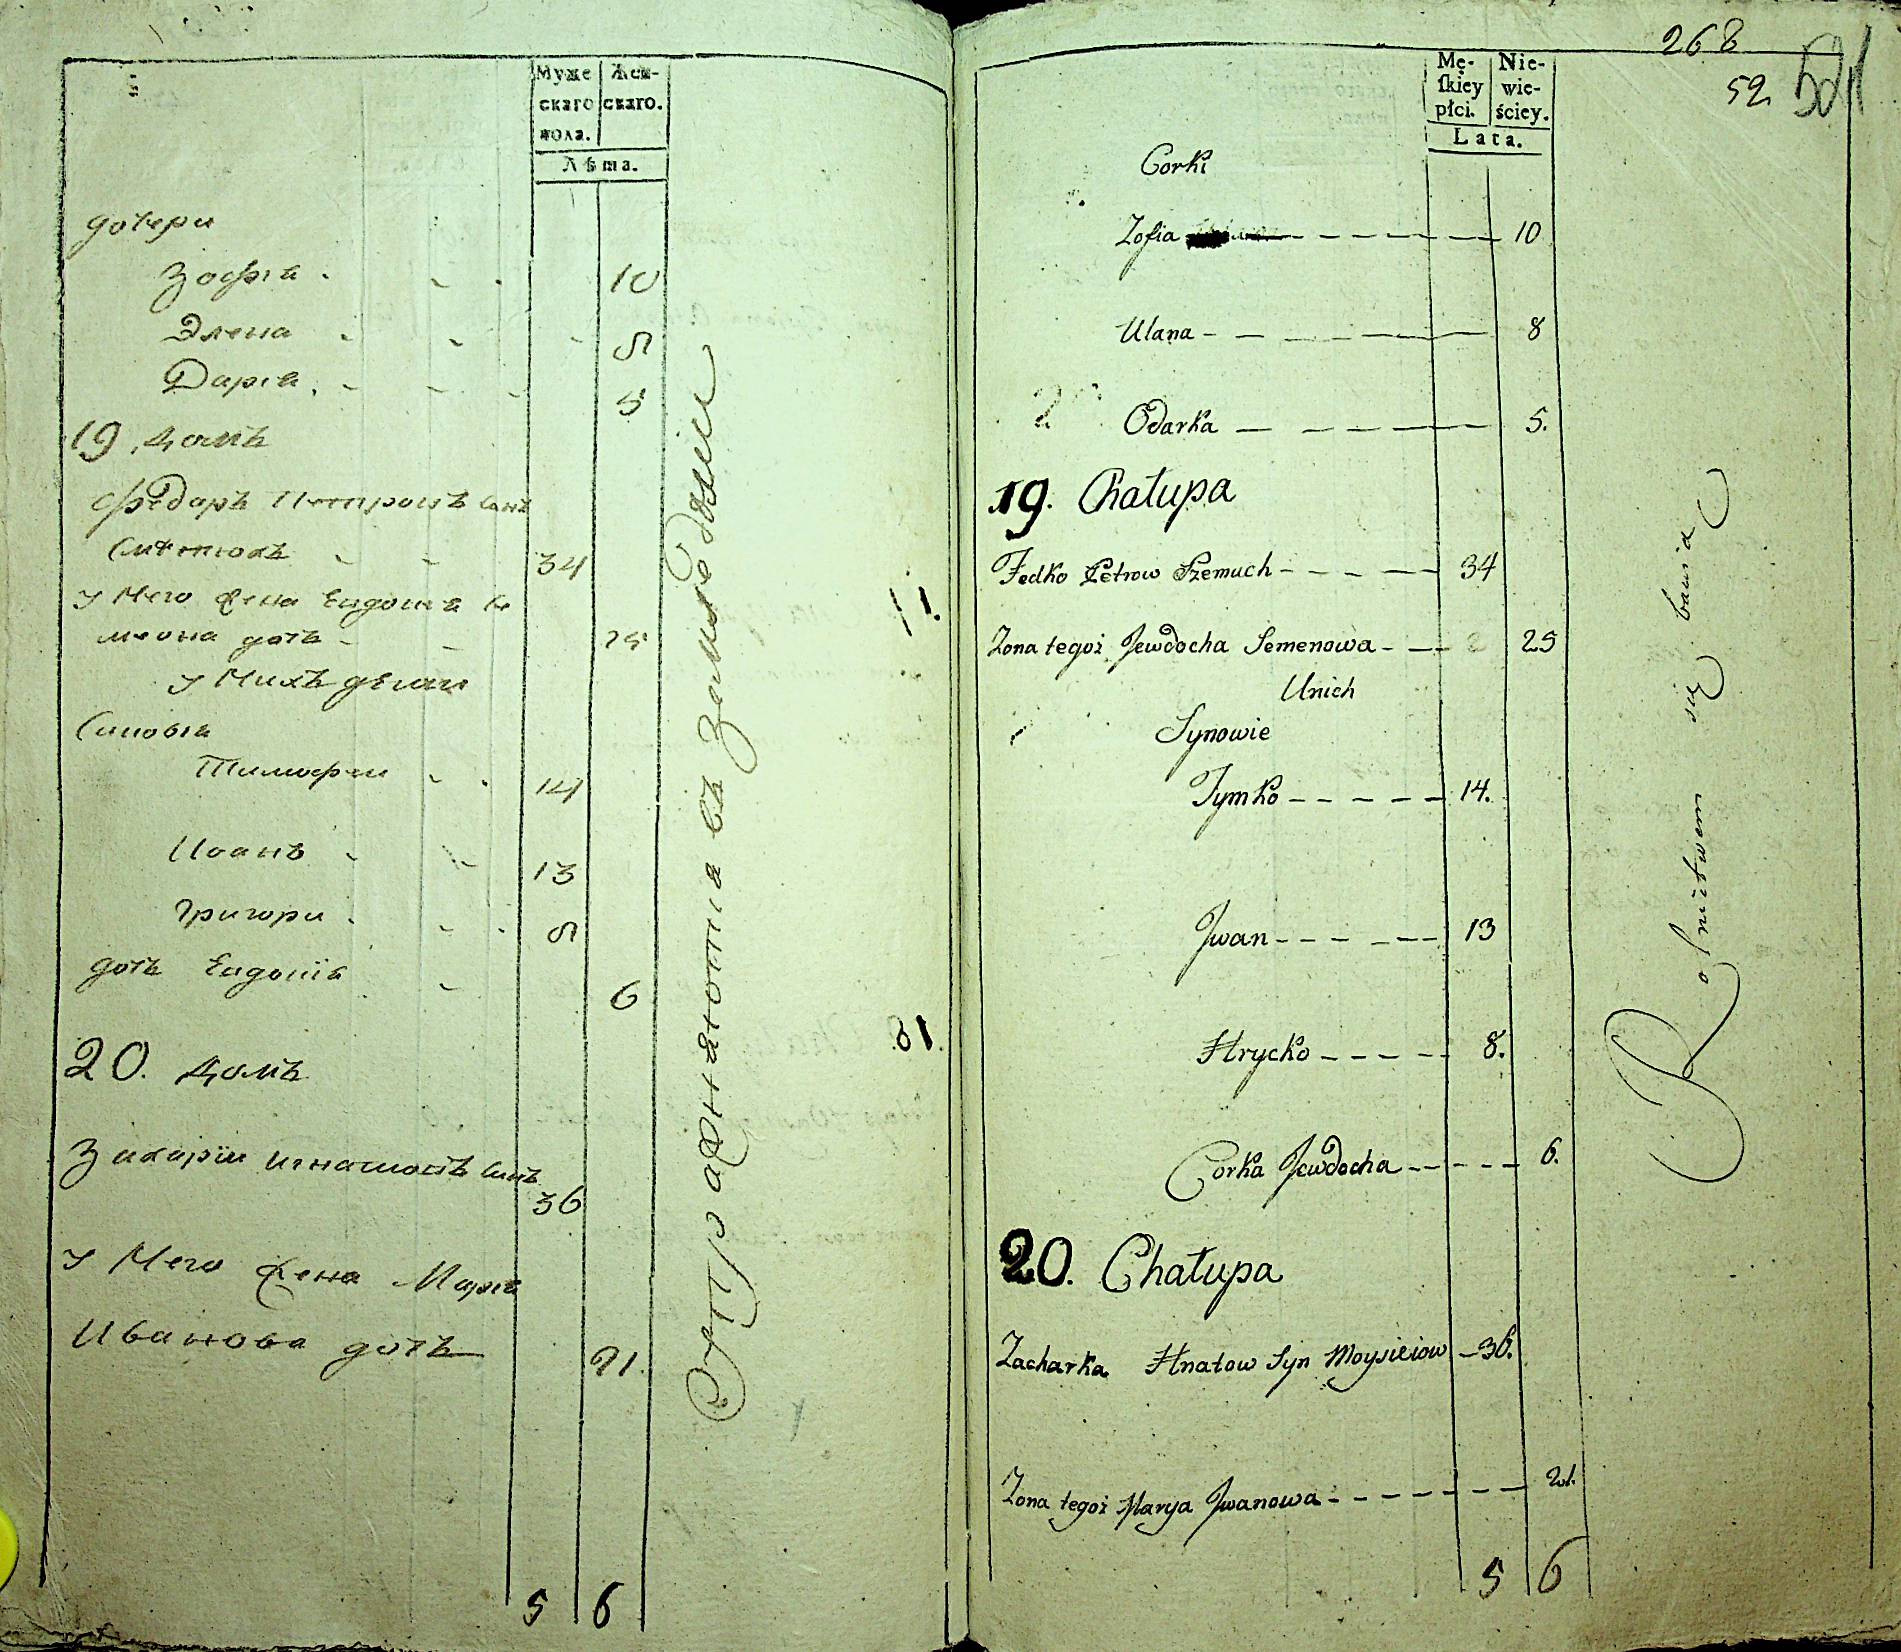 Муже
скаго
пола.
Жен-
скаго.
Лѣта.
дочери
Зофıа 10
Элена 8
Дарıа 5
19 домъ
Федоръ Петровъ сынъ
34
у Него жена Евдокıа Се
меона дочь 25
у Нихъ дѣти
Синовıа
Тимофеи 14
Иванъ 13
Григори 8
дочь Евдокıа 6
20. домъ
Захарıи Игнатовъ синъ
36
у Него жена Марıа
Иванова дочь 21.
5 6
Упражняютıа въ землѣделıи
268
52. 521
Mę-
ſkiey
płci.
Nie-
wie-
ściey.
Lata.
Corki
Zofia 10
Ulana 8
Odarka 5.
19. Chałupa
Fedko Petrow Szemuch 34
Zona tegoż Jewdocha Semenowa 25
Unich
Synowie
Tymko 14.
Jwan 13
Hrycko 8.
Corka Jewdocha 6.
20. Chałupa
Zacharka Hnatow Syn Moysieiow 36.
Zona tegoż Marya Jwanowa 21.
5 6
Rolnictwem się bawią
11.
18.